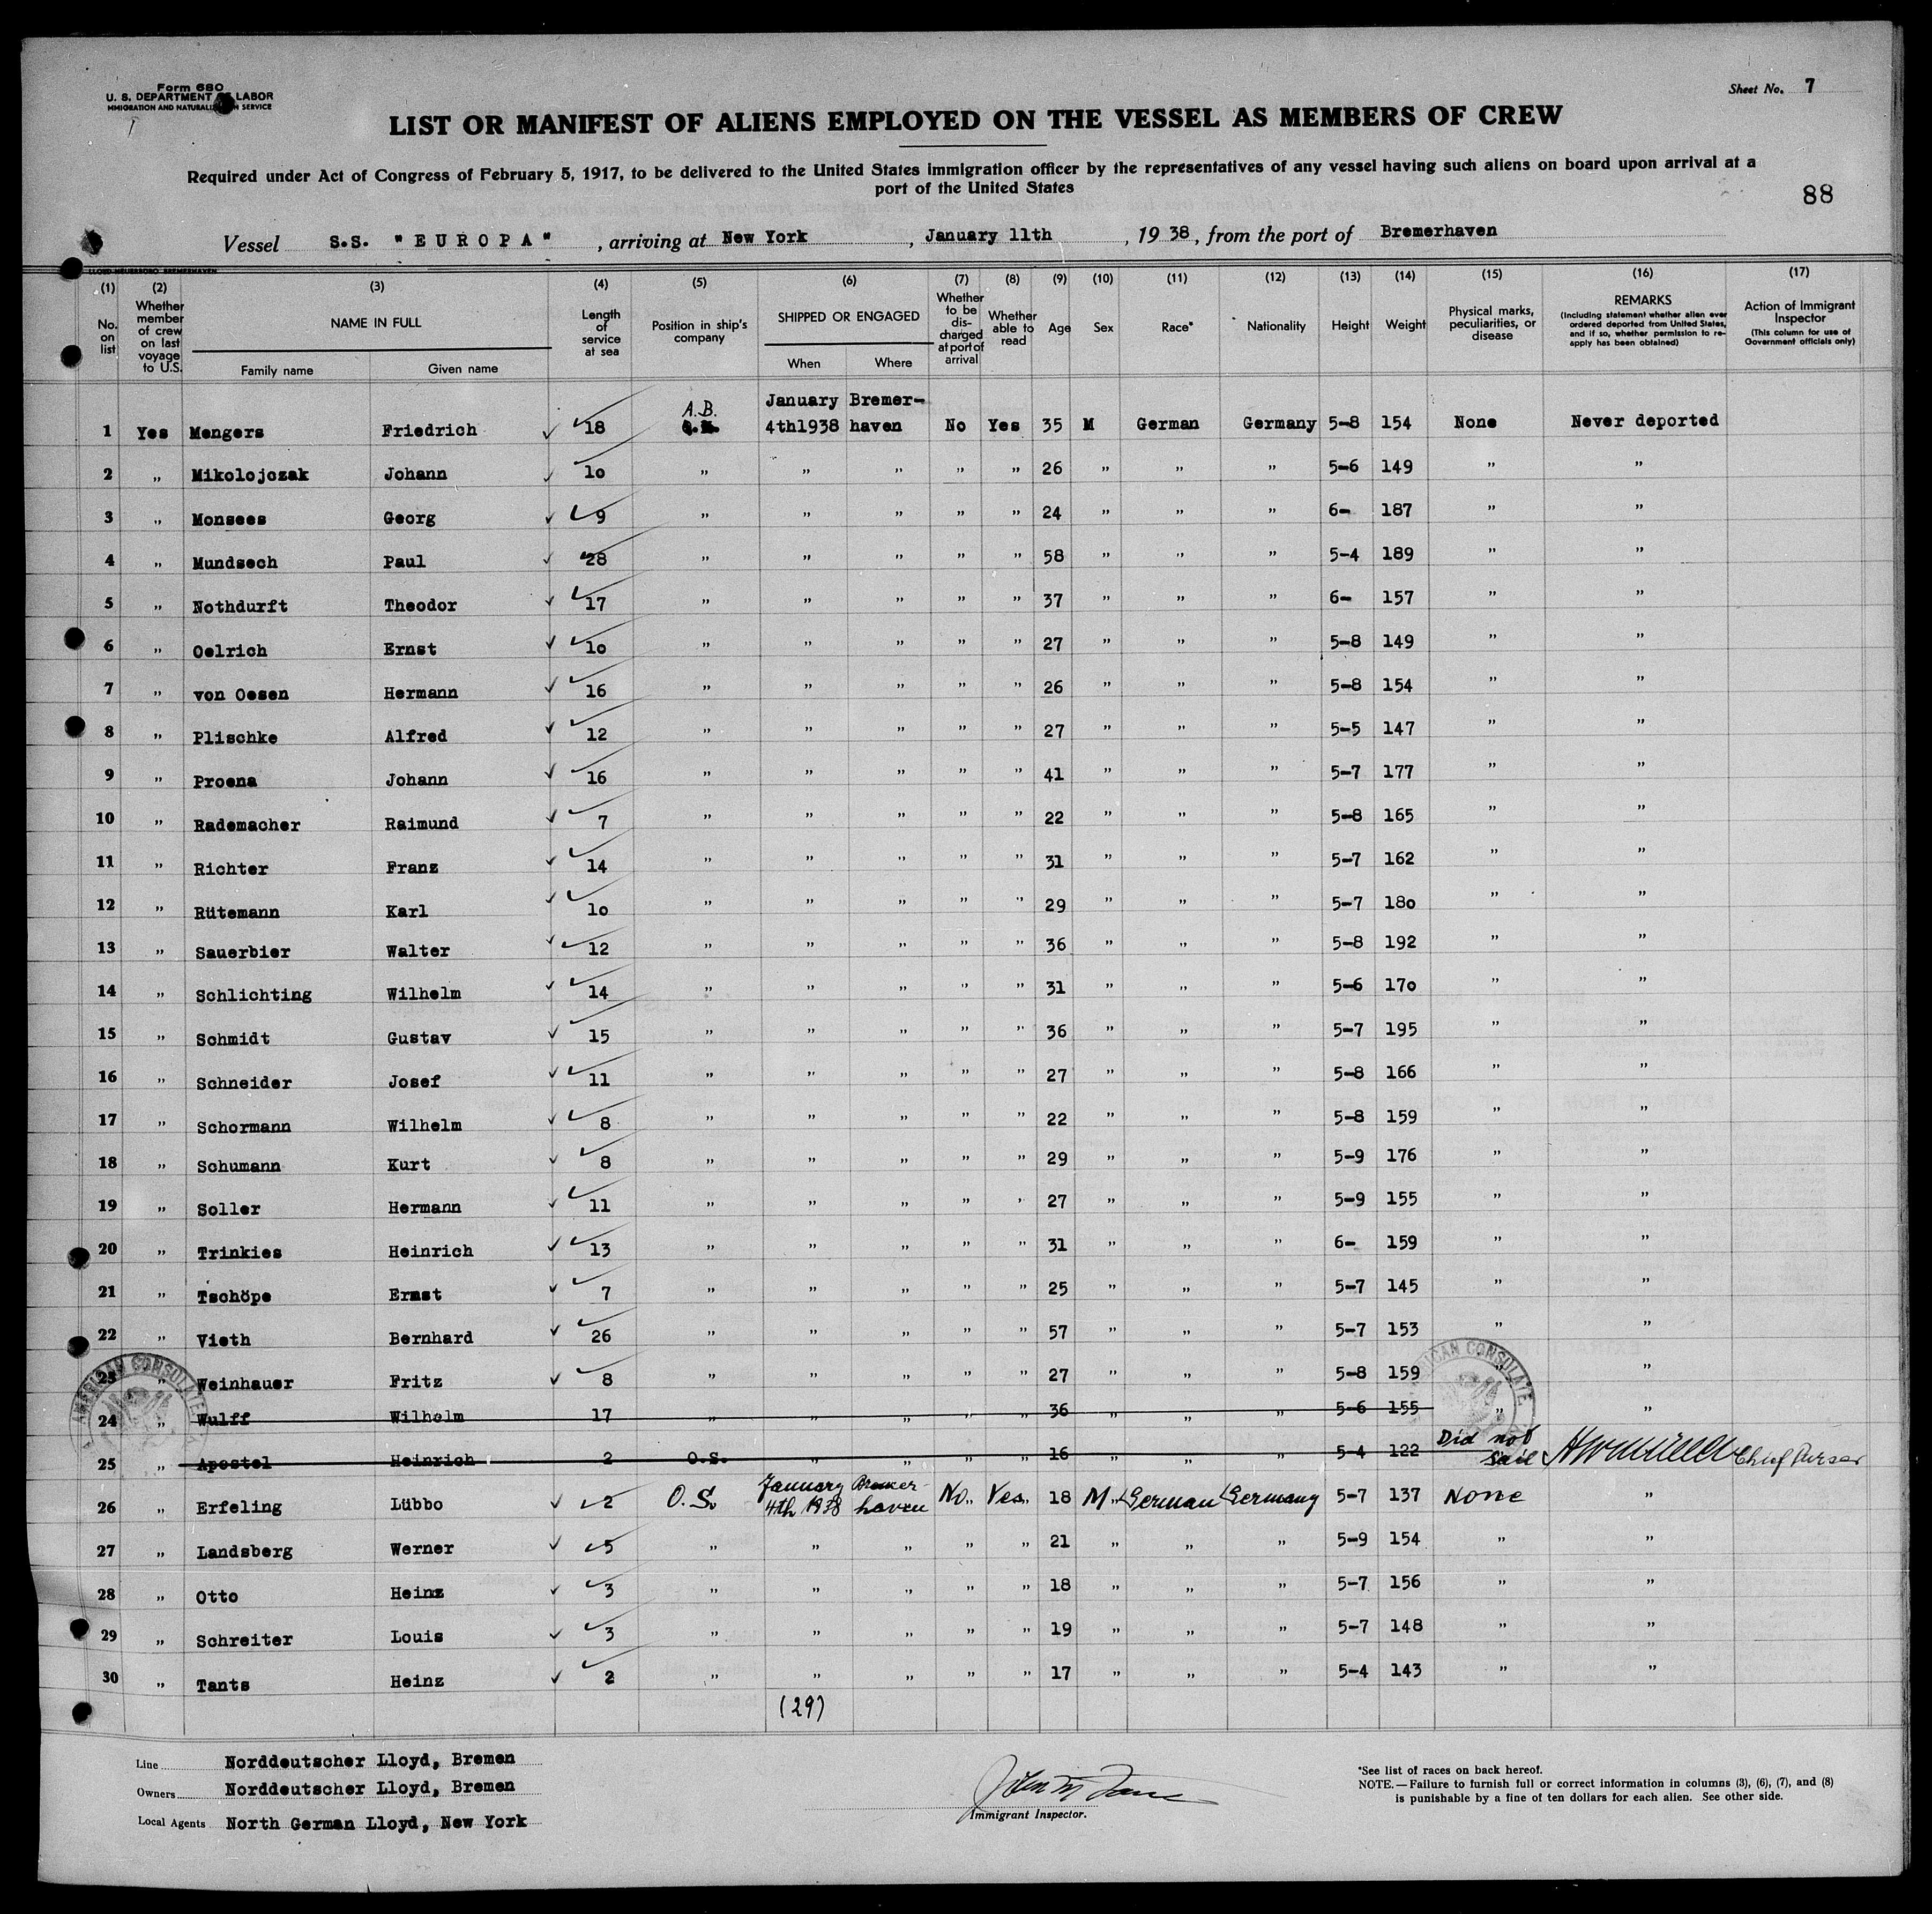 Form 680
U. S. DEPARTMENT OF LABOR
IMMIGRATION AND NATURALIZATION SERVICE
Sheet No. 7
LIST OR MANIFEST OF ALIENS EMPLOYED ON THE VESSEL AS MEMBERS OF CREW
Required under Act of Congress of February 5, 1917, to be delivered to the United States immigration officer by the representatives of any vessel having such aliens on board upon arrival at a
port of the United States
88
Vessel S.S. "EUROPA", arriving at New York, January 11th, 1938, from the port of Bremerhaven
(1) (2) (3) (4) (5) (6) (7) (8) (9) (10) (11) (12) (13) (14) (15) (16) (17)
No. on list
Whether member of crew on last voyage to U.S.
NAME IN FULL
Family name Given name
Length of service at sea
Position in ship's company
SHIPPED OR ENGAGED
When Where
Whether to be discharged at port of arrival
Whether able to read
Age
Sex
Race*
Nationality
Height
Weight
Physical marks, peculiarities, or disease
REMARKS
(Including statement whether alien ever ordered deported from United States, and if so, whether permission to re-apply has been obtained)
Action of Immigrant Inspector
(This column for use of Government officials only)
1 Yes Mengers Friedrich 18 A.B. January 4th1938 Bremer-haven No Yes 35 M German Germany 5-8 154 None Never deported
2 " Mikolojczak Johann 10 " " " " " 26 " " " 5-6 149 " "
3 " Monsees Georg 9 " " " " " 24 " " " 6- 187 " "
4 " Mundsech Paul 28 " " " " " 58 " " " 5-4 189 " "
5 " Nothdurft Theodor 17 " " " " " 37 " " " 6- 157 " "
6 " Oelrich Ernst 10 " " " " " 27 " " " 5-8 149 " "
7 " von Oesen Hermann 16 " " " " " 26 " " " 5-8 154 " "
8 " Plischke Alfred 12 " " " " " 27 " " " 5-5 147 " "
9 " Proena Johann 16 " " " " " 41 " " " 5-7 177 " "
10 " Rademacher Raimund 7 " " " " " 22 " " " 5-8 165 " "
11 " Richter Franz 14 " " " " " 31 " " " 5-7 162 " "
12 " Rütemann Karl 10 " " " " " 29 " " " 5-7 180 " "
13 " Sauerbier Walter 12 " " " " " 36 " " " 5-8 192 " "
14 " Schlichting Wilhelm 14 " " " " " 31 " " " 5-6 170 " "
15 " Schmidt Gustav 15 " " " " " 36 " " " 5-7 195 " "
16 " Schneider Josef 11 " " " " " 27 " " " 5-8 166 " "
17 " Schormann Wilhelm 8 " " " " " 22 " " " 5-8 159 " "
18 " Schumann Kurt 8 " " " " " 29 " " " 5-9 176 " "
19 " Soller Hermann 11 " " " " " 27 " " " 5-9 155 " "
20 " Trinkies Heinrich 13 " " " " " 31 " " " 6- 159 " "
21 " Tschöpe Ernst 7 " " " " " 25 " " " 5-7 145 " "
22 " Vieth Bernhard 26 " " " " " 57 " " " 5-7 153 " "
23 " Weinhauer Fritz 8 " " " " " 27 " " " 5-8 159 " "
24 " Wulff Wilhelm 17 " " " " " 36 " " " 5-6 155 " "
25 " Apostel Heinrich 2 O.S. " " " " 16 " " " 5-4 122 Did not sail Chief Purser
26 " Erfeling Lübbo 2 O.S. January 4th 1938 Bremer-haven No Yes 18 M German Germany 5-7 137 None "
27 " Landsberg Werner 5 " " " " " 21 " " " 5-9 154 " "
28 " Otto Heinz 3 " " " " " 18 " " " 5-7 156 " "
29 " Schreiter Louis 3 " " " " " 19 " " " 5-7 148 " "
30 " Tants Heinz 2 " " " " " 17 " " " 5-4 143 " "
(29)
AMERICAN CONSULATE
AMERICAN CONSULATE
Line Norddeutscher Lloyd, Bremen
Owners Norddeutscher Lloyd, Bremen
Local Agents North German Lloyd, New York
Immigrant Inspector.
*See list of races on back hereof.
NOTE.—Failure to furnish full or correct information in columns (3), (6), (7), and (8)
is punishable by a fine of ten dollars for each alien. See other side.